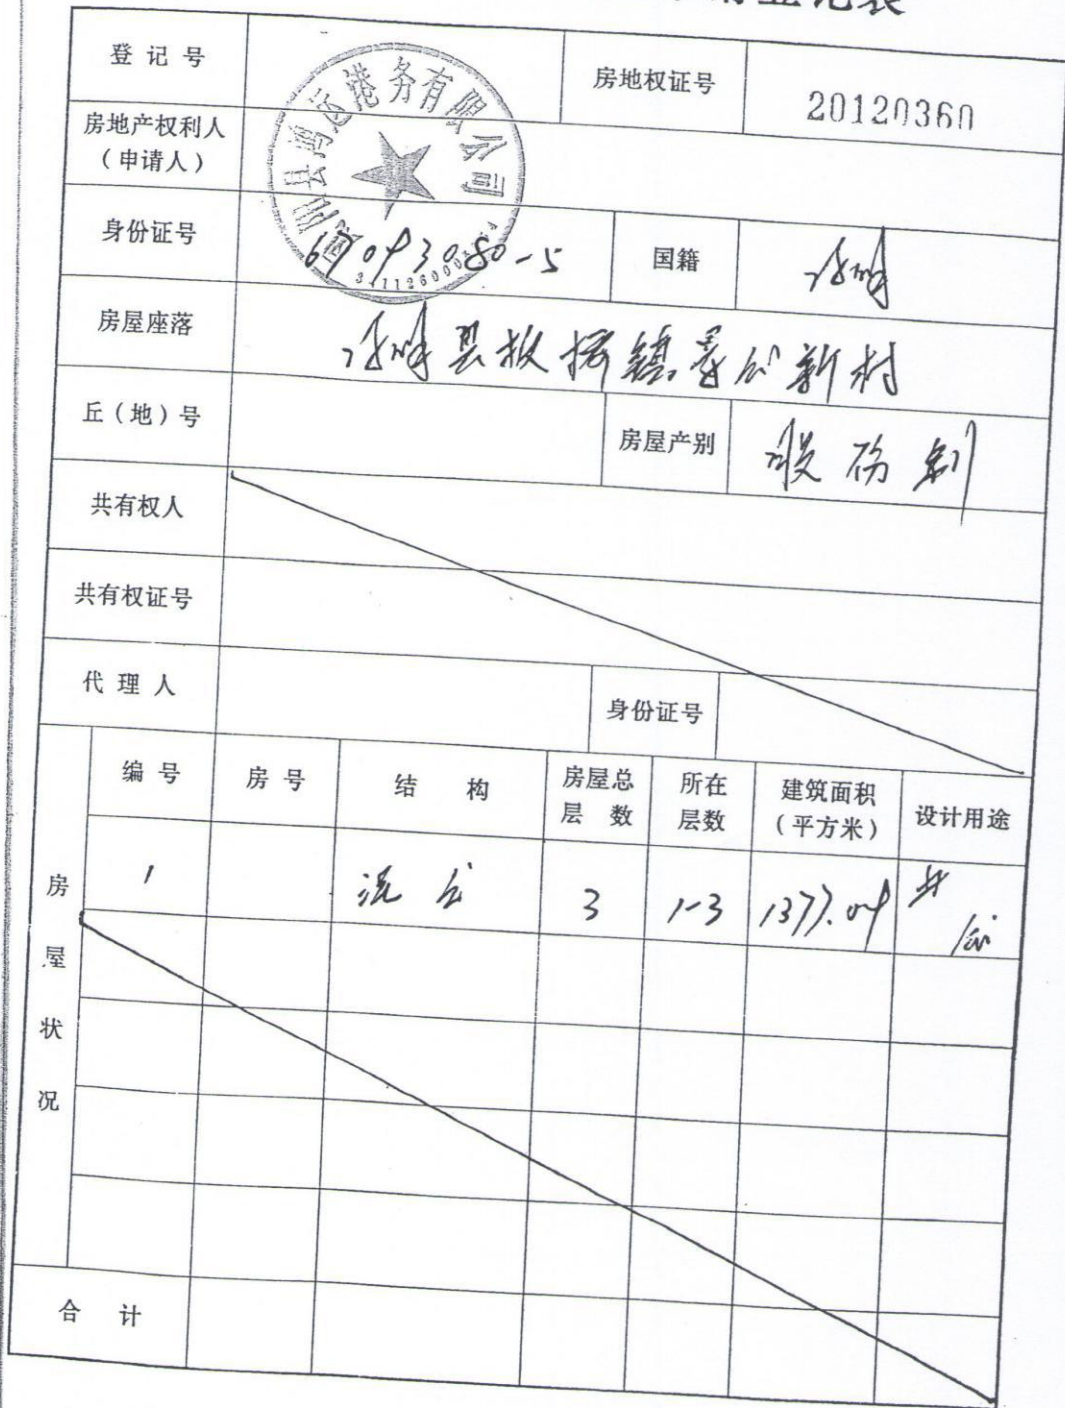 登记表
登记号
房地权证号
20120360
房地产权利人
（申请人）
县鸿运港务有限公司
身份证号
67093080-5
国籍
房屋座落
县板桥镇 新村
丘（地）号
房屋产别
股份制
共有权人
共有权证号
代理人
身份证号
房屋状况
编号 房号 结构 房屋总层数 所在层数 建筑面积（平方米） 设计用途
1 混合 3 1-3 1377.04 办公
合计